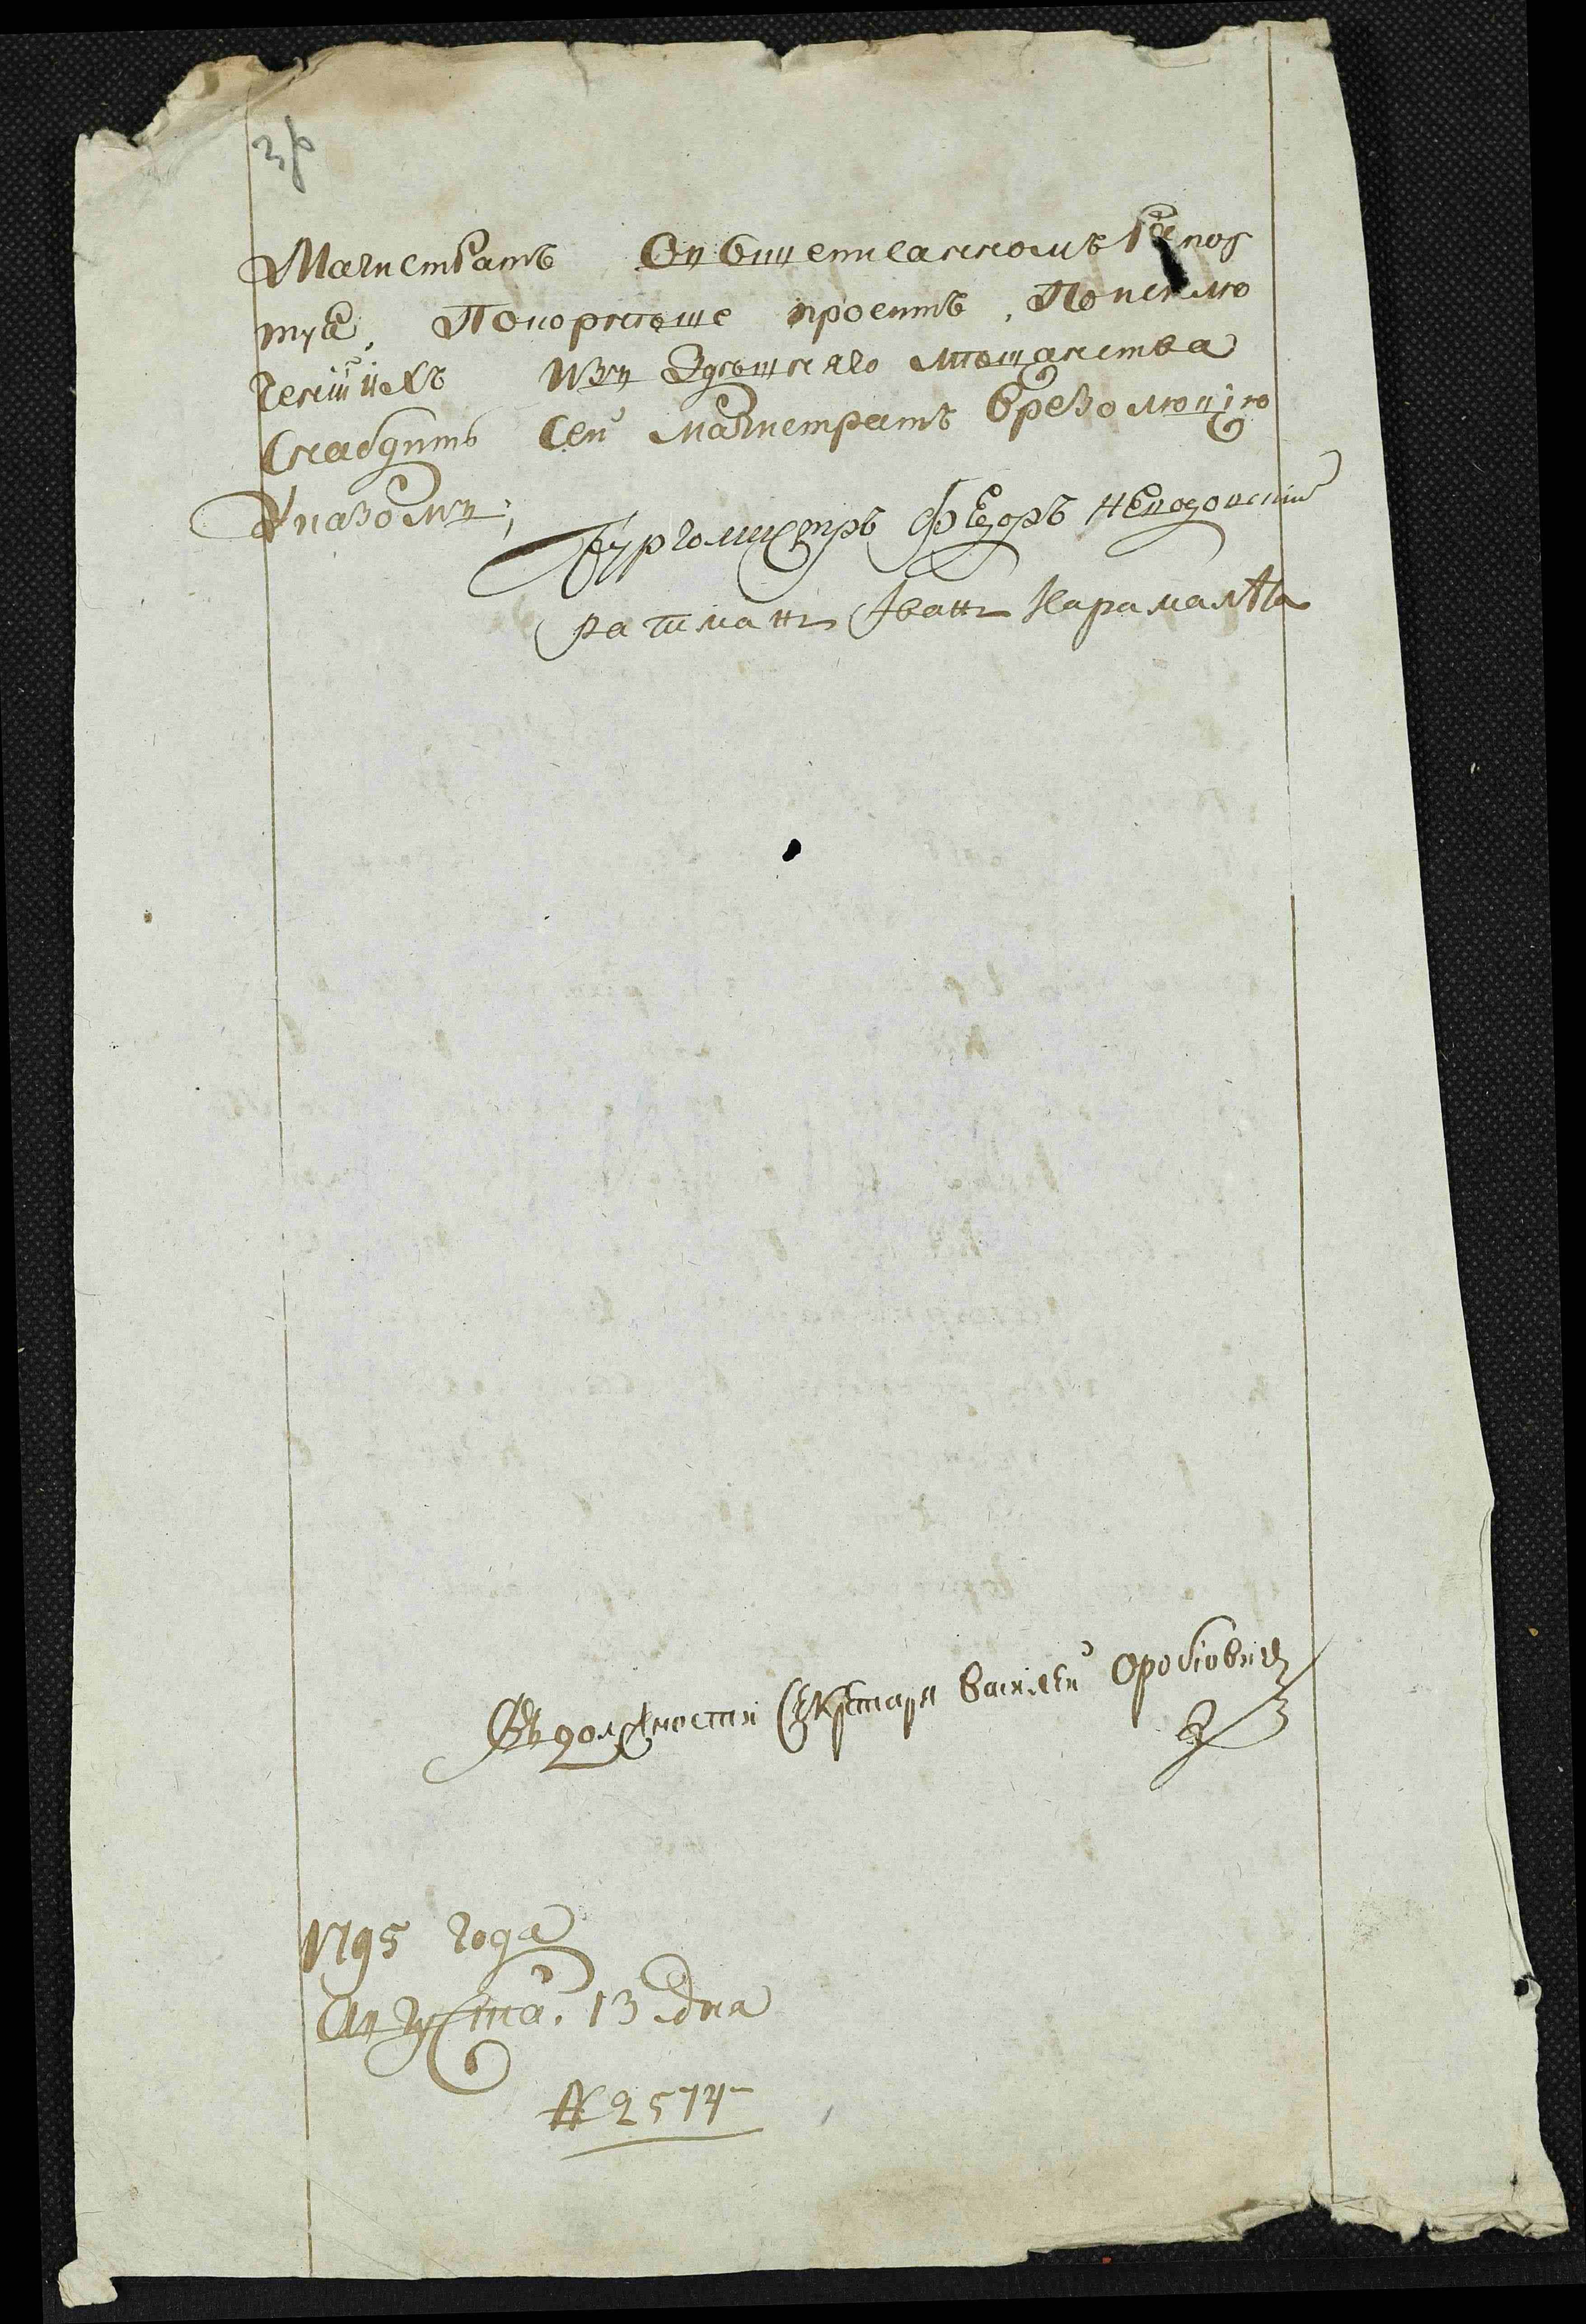 Магистратъ Он вишеписанномъ рапор
туе, Покорнѣише проситъ, Поисклю
ченіи ихъ Изъ Здѣшняго мѣщанства
Снабдить сей магистратъ врезолюцію
Указомъ;
Бургомистръ Федоръ
ратманъ Іванъ Карамалѣа
Въ должности Секретаря Василей Оробіовичъ
1795 года
Августа. 13 дня
№ 2574